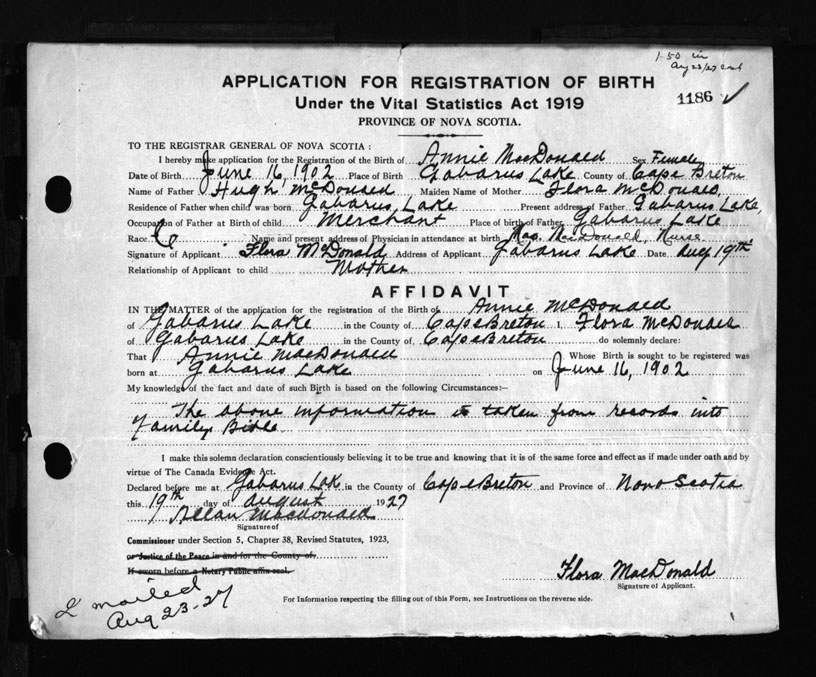 1.50 in
Aug 23/27
APPLICATION FOR REGISTRATION OF BIRTH
1186 ✓
Under the Vital Statistics Act 1919
PROVINCE OF NOVA SCOTIA.
TO THE REGISTRAR GENERAL OF NOVA SCOTIA :
I hereby make application for the Registration of the Birth of Annie MacDonald Sex Female
Date of Birth June 16, 1902 Place of Birth Gabarus Lake County of Cape Breton
Name of Father Hugh McDonald Maiden Name of Mother Flora McDonald,
Residence of Father when child was born Gabarus Lake Present address of Father Gabarus Lake,
Occupation of Father at Birth of child Merchant Place of birth of Father Gabarus Lake
Race Name and present address of Physician in attendance at birth MacDonald, Nurse
Signature of Applicant Flora McDonald Address of Applicant Gabarus Lake Date Aug 19th
Relationship of Applicant to child Mother
AFFIDAVIT
IN THE MATTER of the application for the registration of the Birth of Annie McDonald
of Gabarus Lake in the County of Cape Breton I, Flora McDonald
of Gabarus Lake in the County of Cape Breton do solemnly declare:
That Annie MacDonald Whose Birth is sought to be registered was
born at Gabarus Lake on June 16, 1902
My knowledge of the fact and date of such Birth is based on the following Circumstances:—
The above information is taken from records into
Family Bible
I make this solemn declaration conscientiously believing it to be true and knowing that it is of the same force and effect as if made under oath and by
virtue of The Canada Evidence Act.
Declared before me at Gabarus Lak in the County of Cape Breton and Province of Nova Scotia
this 19th day of August 1927
Allan Macdonald
Signature of
Commissioner under Section 5, Chapter 38, Revised Statutes, 1923,
or Justice of the Peace in and for the County of
If sworn before a Notary Public affix seal.
Flora MacDonald
Signature of Applicant.
For Information respecting the filling out of this Form, see Instructions on the reverse side.
mailed
Aug 23-27